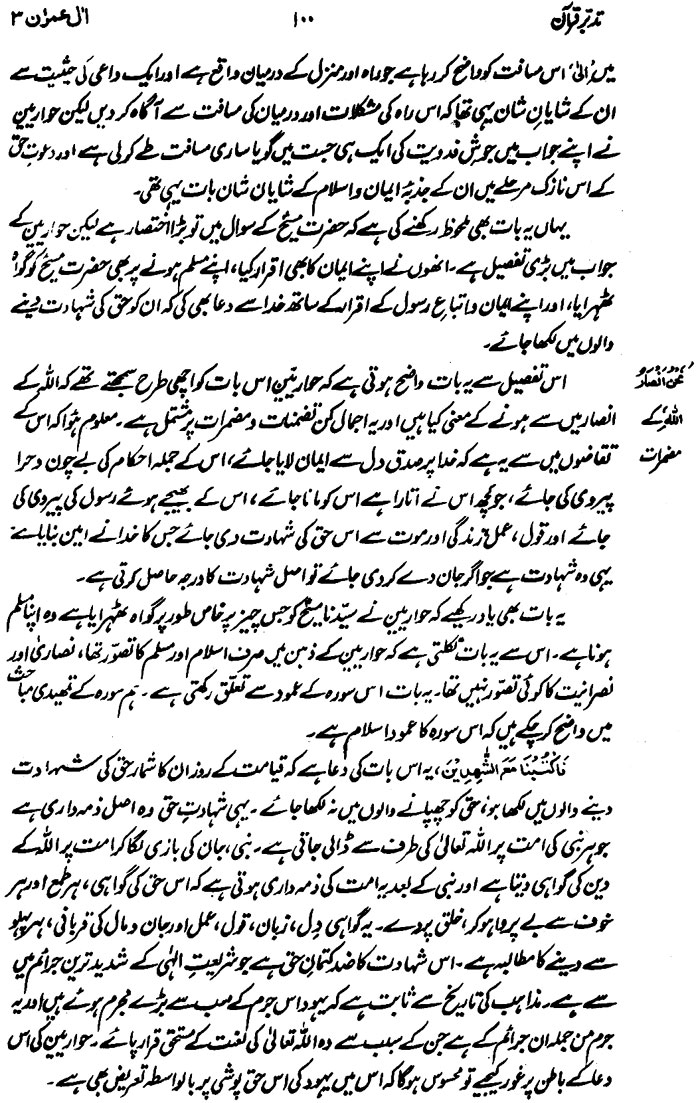 تدبر قرآن ۱۰۰ اٰل عمرٰن ۳
میں ’الیٰ‘ اس مسافت کو واضح کر رہا ہے جو راہ اور منزل کے درمیان واقع ہے اور ایک داعی کی حیثیت سے
ان کے شایانِ شان یہی تھا کہ اس راہ کی مشکلات اور درمیان کی مسافت سے آگاہ کر دیں لیکن حواریین
نے اپنے جواب میں جوشِ فدویت کی ایک ہی جست میں گویا ساری مسافت طے کر لی ہے اور دعوتِ حق
کے اس نازک مرحلے میں ان کے جذبۂ ایمان و اسلام کے شایانِ شان بات یہی تھی۔
یہاں یہ بات بھی ملحوظ رکھنے کی ہے کہ حضرت مسیحؑ کے سوال میں تو بڑا اختصار ہے لیکن حواریین کے
جواب میں بڑی تفصیل ہے۔ انھوں نے اپنے ایمان کا بھی اقرار کیا، اپنے مسلم ہونے پر بھی حضرت مسیحؑ کو گواہ
ٹھہرایا، اور اپنے ایمان و اتباعِ رسول کے اقرار کے ساتھ خدا سے دعا بھی کی کہ ان کو حق کی شہادت دینے
والوں میں لکھا جائے۔
نَحْنُ اَنْصَارُ
اللّٰهِ کے
مضمرات
اس تفصیل سے یہ بات واضح ہوتی ہے کہ حواریین اس بات کو اچھی طرح سمجھتے تھے کہ اللہ کے
انصار میں سے ہونے کے معنی کیا ہیں اور یہ اجمال کن تضمنات و مضمرات پر مشتمل ہے۔ معلوم ہوا کہ اس کے
تقاضوں میں سے یہ ہے کہ خدا پر صدقِ دل سے ایمان لایا جائے، اس کے جملہ احکام کی بے چون و چرا
پیروی کی جائے، جو کچھ اس نے اتارا ہے اس کو مانا جائے، اس کے بھیجے ہوئے رسول کی پیروی کی
جائے اور قول، عمل، زندگی اور موت سے اس حق کی شہادت دی جائے جس کا خدا نے امین بنایا ہے۔
یہی وہ شہادت ہے جو اگر جان دے کر دی جائے تو اصل شہادت کا درجہ حاصل کرتی ہے۔
یہ بات بھی یاد رکھیے کہ حواریین نے سیّدنا مسیحؑ کو جس چیز پر خاص طور پر گواہ ٹھہرایا ہے وہ اپنا مسلم
ہونا ہے۔ اس سے یہ بات نکلتی ہے کہ حواریین کے ذہن میں صرف اسلام اور مسلم کا تصوّر تھا، نصاریٰ اور
نصرانیت کا کوئی تصوّر نہیں تھا۔ یہ بات اس سورہ کے عمود سے تعلّق رکھتی ہے۔ ہم سورہ کے تمہیدی مباحث
میں واضح کر چکے ہیں کہ اس سورہ کا عمود اسلام ہے۔
فَاكْتُبْنَا مَعَ الشّٰهِدِيْنَ، یہ اس بات کی دعا ہے کہ قیامت کے روز ان کا شمار حق کی شہادت
دینے والوں میں لکھا ہو، حق کو چھپانے والوں میں نہ لکھا جائے۔ یہی شہادتِ حق وہ اصل ذمہ داری ہے
جو ہر نبی کی امت پر اللہ تعالیٰ کی طرف سے ڈالی جاتی ہے۔ نبی، جان کی بازی لگا کر امت پر اللہ کے
دین کی گواہی دیتا ہے اور نبی کے بعد یہ امت کی ذمہ داری ہوتی ہے کہ اس حق کی گواہی، ہر طمع اور ہر
خوف سے بے پروا ہو کر، خلق پر دے۔ یہ گواہی دل، زبان، قول، عمل اور جان و مال کی قربانی، ہر پہلو
سے دینے کا مطالبہ ہے۔ اس شہادت کا ضد کتمانِ حق ہے جو شریعتِ الٰہی کے شدید ترین جرائم میں
سے ہے۔ مذاہب کی تاریخ سے ثابت ہے کہ یہود اس جرم کے سب سے بڑے مجرم ہوئے ہیں اور یہ
جرم من جملہ ان جرائم کے ہے جن کے سبب سے وہ اللہ تعالیٰ کی لعنت کے مستحق قرار پائے۔ حواریین کی اس
دعا کے باطن پر غور کیجیے تو محسوس ہوگا کہ اس میں یہود کی اس حق پوشی پر بالواسطہ تعریض بھی ہے۔